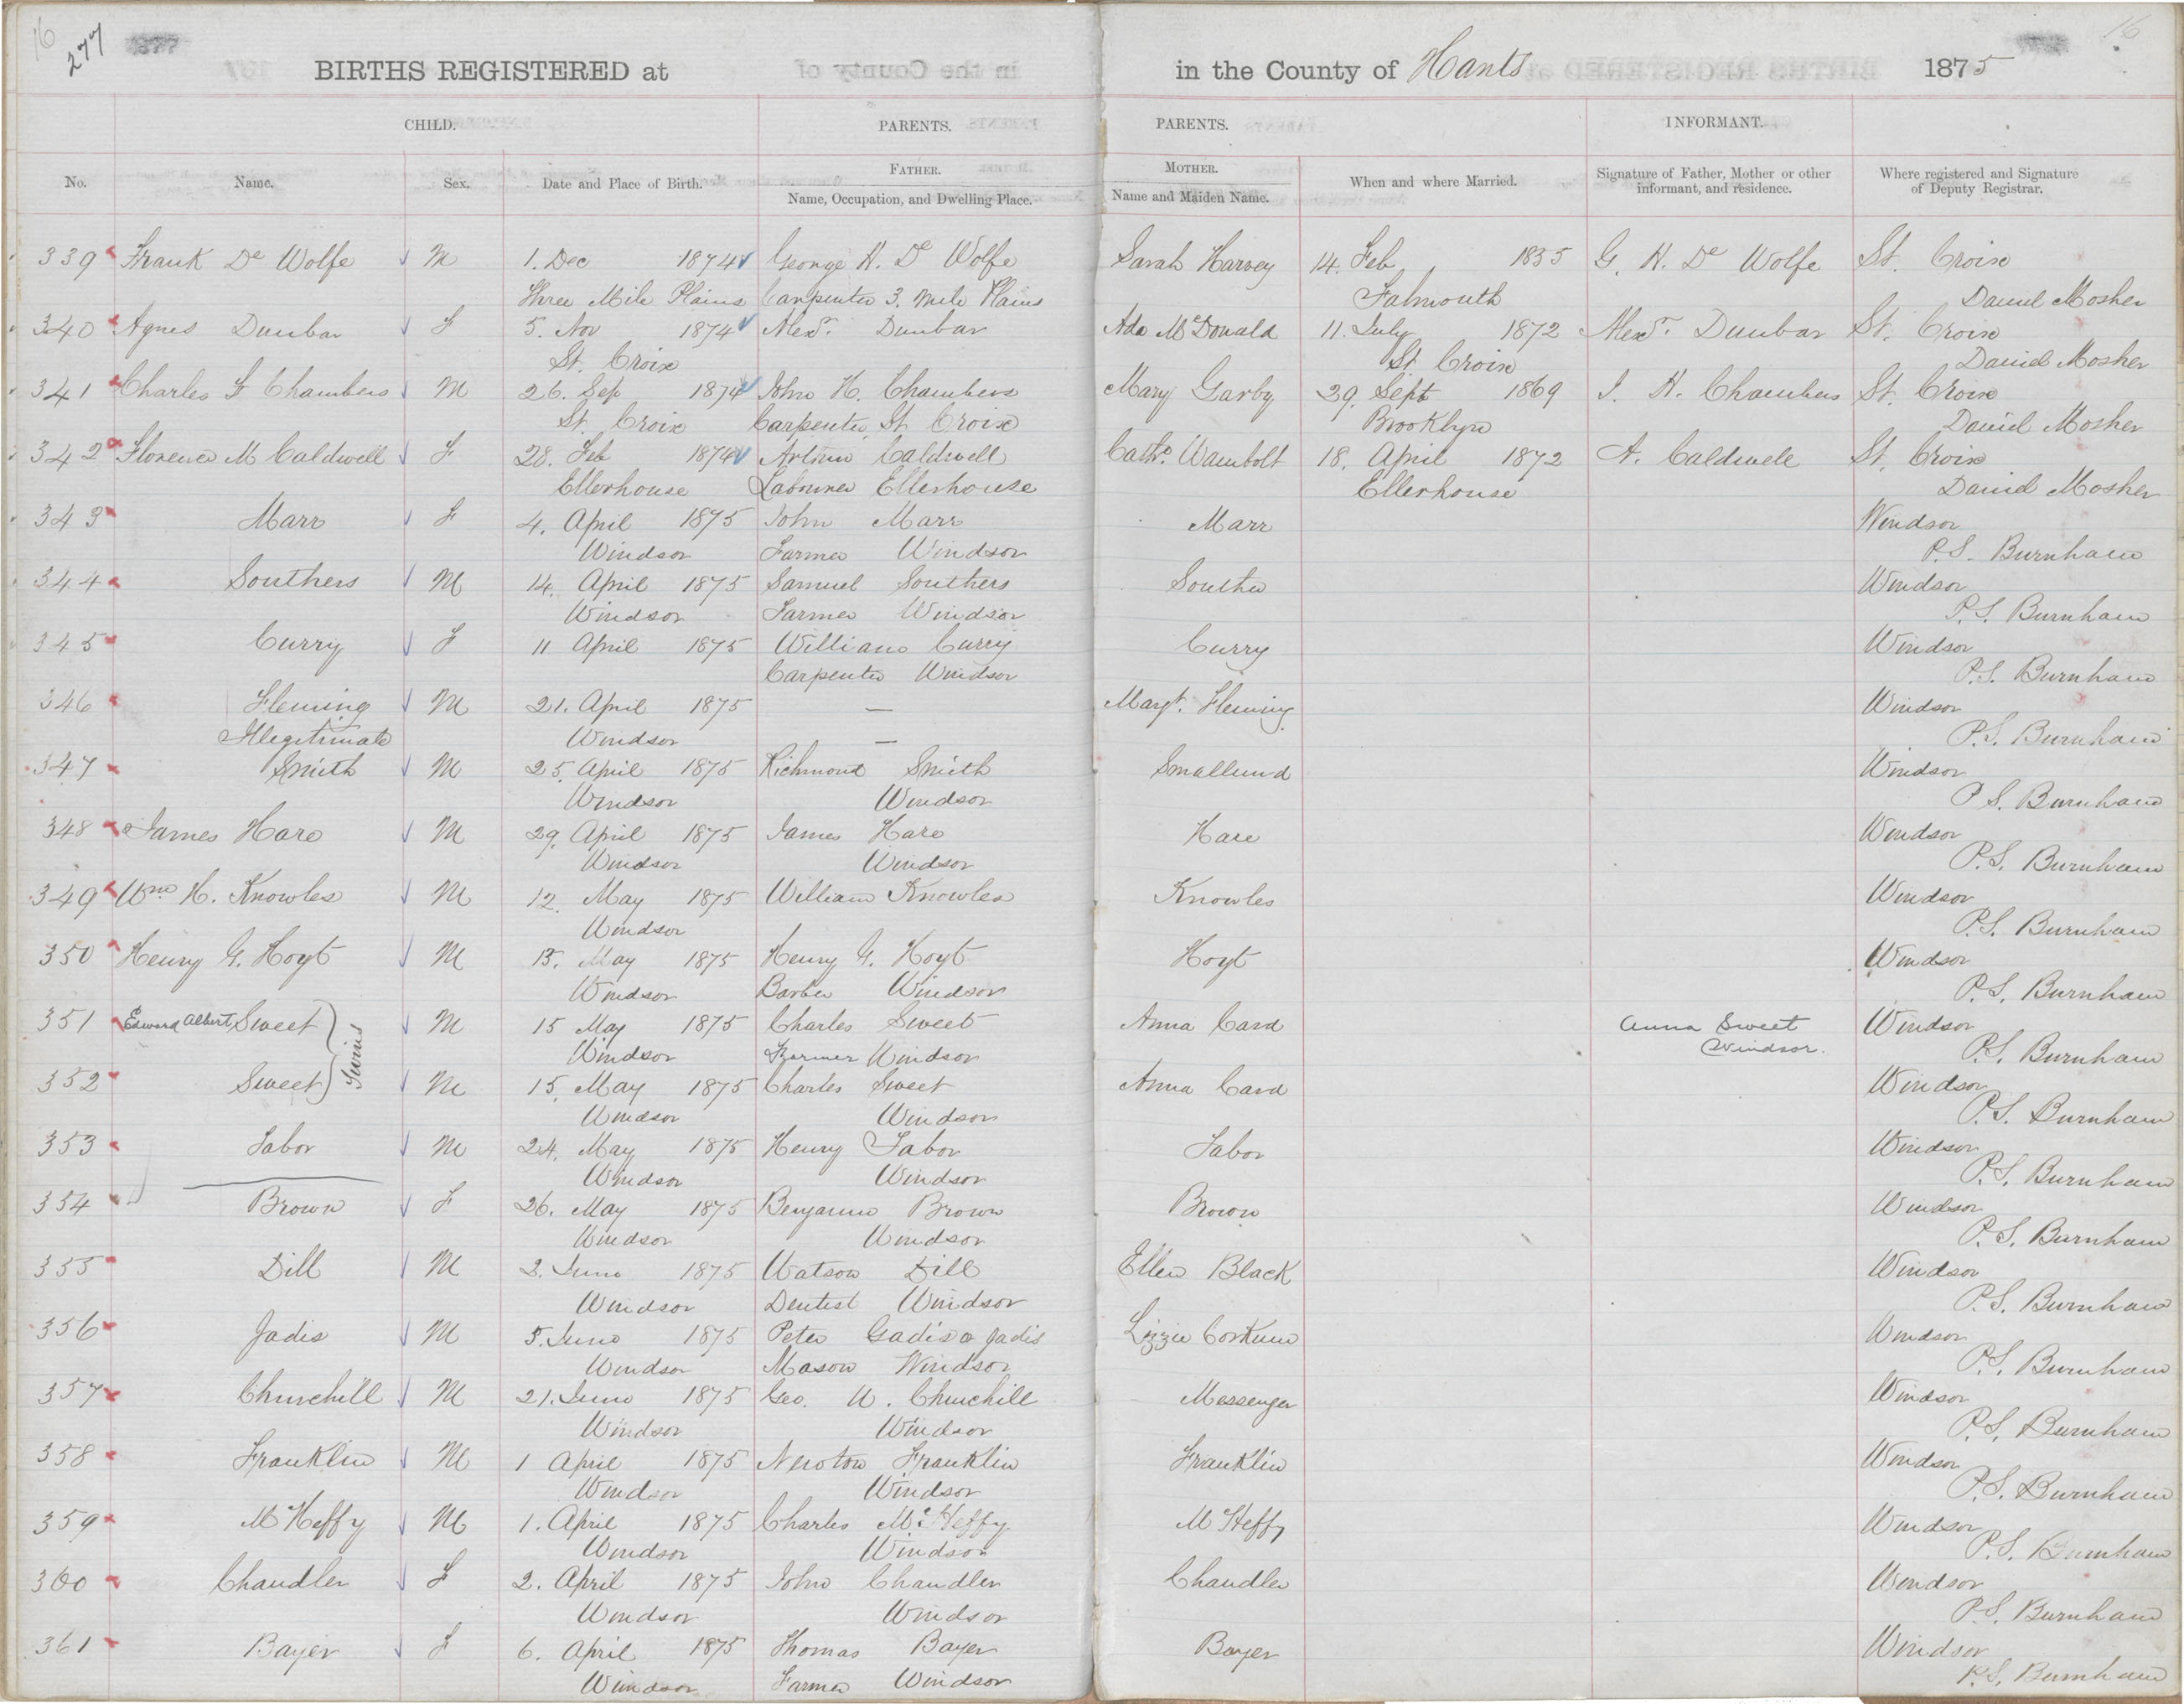 16
277
16
BIRTHS REGISTERED at in the County of Hants 1875
CHILD. PARENTS. PARENTS. INFORMANT.
No. Name. Sex. Date and Place of Birth. FATHER. Name, Occupation, and Dwelling Place. MOTHER. Name and Maiden Name. When and where Married. Signature of Father, Mother or other informant, and residence. Where registered and Signature of Deputy Registrar.
339 Frank De Wolfe M 1. Dec 1874 George H. De Wolfe Sarah Harvey 14. Feb 1855 G. H. De Wolfe St. Croix
Three Mile Plains Carpenter 3. Mile Plains Falmouth Daniel Mosher
340 Agnes Dunbar F 5. Nov 1874 Alexr. Dunbar Ada McDonald 11. July 1872 Alexr. Dunbar St. Croix
St. Croix St. Croix Daniel Mosher
341 Charles F Chambers M 26. Sep 1874 John H. Chambers Mary Garby 29. Sept 1869 J. H. Chambers St. Croix
St. Croix Carpenter St. Croix Brooklyn Daniel Mosher
342 Florence M Caldwell F 28. Feb 1874 Arthur Caldwell Cathe. Wambolt 18. April 1872 A. Caldwell St. Croix
Ellerhouse Labourer Ellerhouse Ellerhouse Daniel Mosher
343 Marr F 4. April 1875 John Marr Marr Windsor
Windsor Farmer Windsor P.S. Burnham
344 Southers M 14. April 1875 Samuel Southers Souther Windsor
Windsor Farmer Windsor P.S. Burnham
345 Curry F 11 April 1875 William Curry Curry Windsor
Carpenter Windsor P.S. Burnham
346 Fleming M 21. April 1875 — Margt. Fleming Windsor
Illegitimate Windsor — P.S. Burnham
347 Smith M 25. April 1875 Richmond Smith Windsor
Windsor Windsor P.S. Burnham
348 James Hare M 29. April 1875 James Hare Hare Windsor
Windsor Windsor P.S. Burnham
349 Wm. H. Knowles M 12. May 1875 William Knowles Knowles Windsor
Windsor P.S. Burnham
350 Henry G. Hoyt M May 1875 Henry G. Hoyt Hoyt Windsor
Windsor Barber Windsor P.S. Burnham
351 Edward Albert Sweet M 15 May 1875 Charles Sweet Anna Card Anna Sweet Windsor
Twins Windsor Farmer Windsor Windsor. P.S. Burnham
352 Sweet M 15. May 1875 Charles Sweet Anna Card Windsor
Windsor Windsor P.S. Burnham
353 Tabor M 24. May 1875 Henry Tabor Tabor Windsor
Windsor Windsor P.S. Burnham
354 Brown F 26. May 1875 Benjamin Brown Brown Windsor
Windsor Windsor P.S. Burnham
355 Dill M 2. June 1875 Watson Dill Ellen Black Windsor
Windsor Dentist Windsor P.S. Burnham
356 Jadis M 5. June 1875 Peter Gadis o Jadis Lizzie Corkum Windsor
Windsor Mason Windsor P.S. Burnham
357 Churchill M 21. June 1875 Geo. W. Churchill Messenger Windsor
Windsor Windsor P.S. Burnham
358 Franklin M 1 April 1875 Newton Franklin Franklin Windsor
Windsor Windsor P.S. Burnham
359 McHeffy M 1. April 1875 Charles McHeffy McHeffy Windsor
Windsor Windsor P.S. Burnham
360 Chandler F 2. April 1875 John Chandler Chandler Windsor
Windsor Windsor P.S. Burnham
361 Bayer F 6. April 1875 Thomas Bayer Bayer Windsor
Windsor Farmer Windsor P.S. Burnham